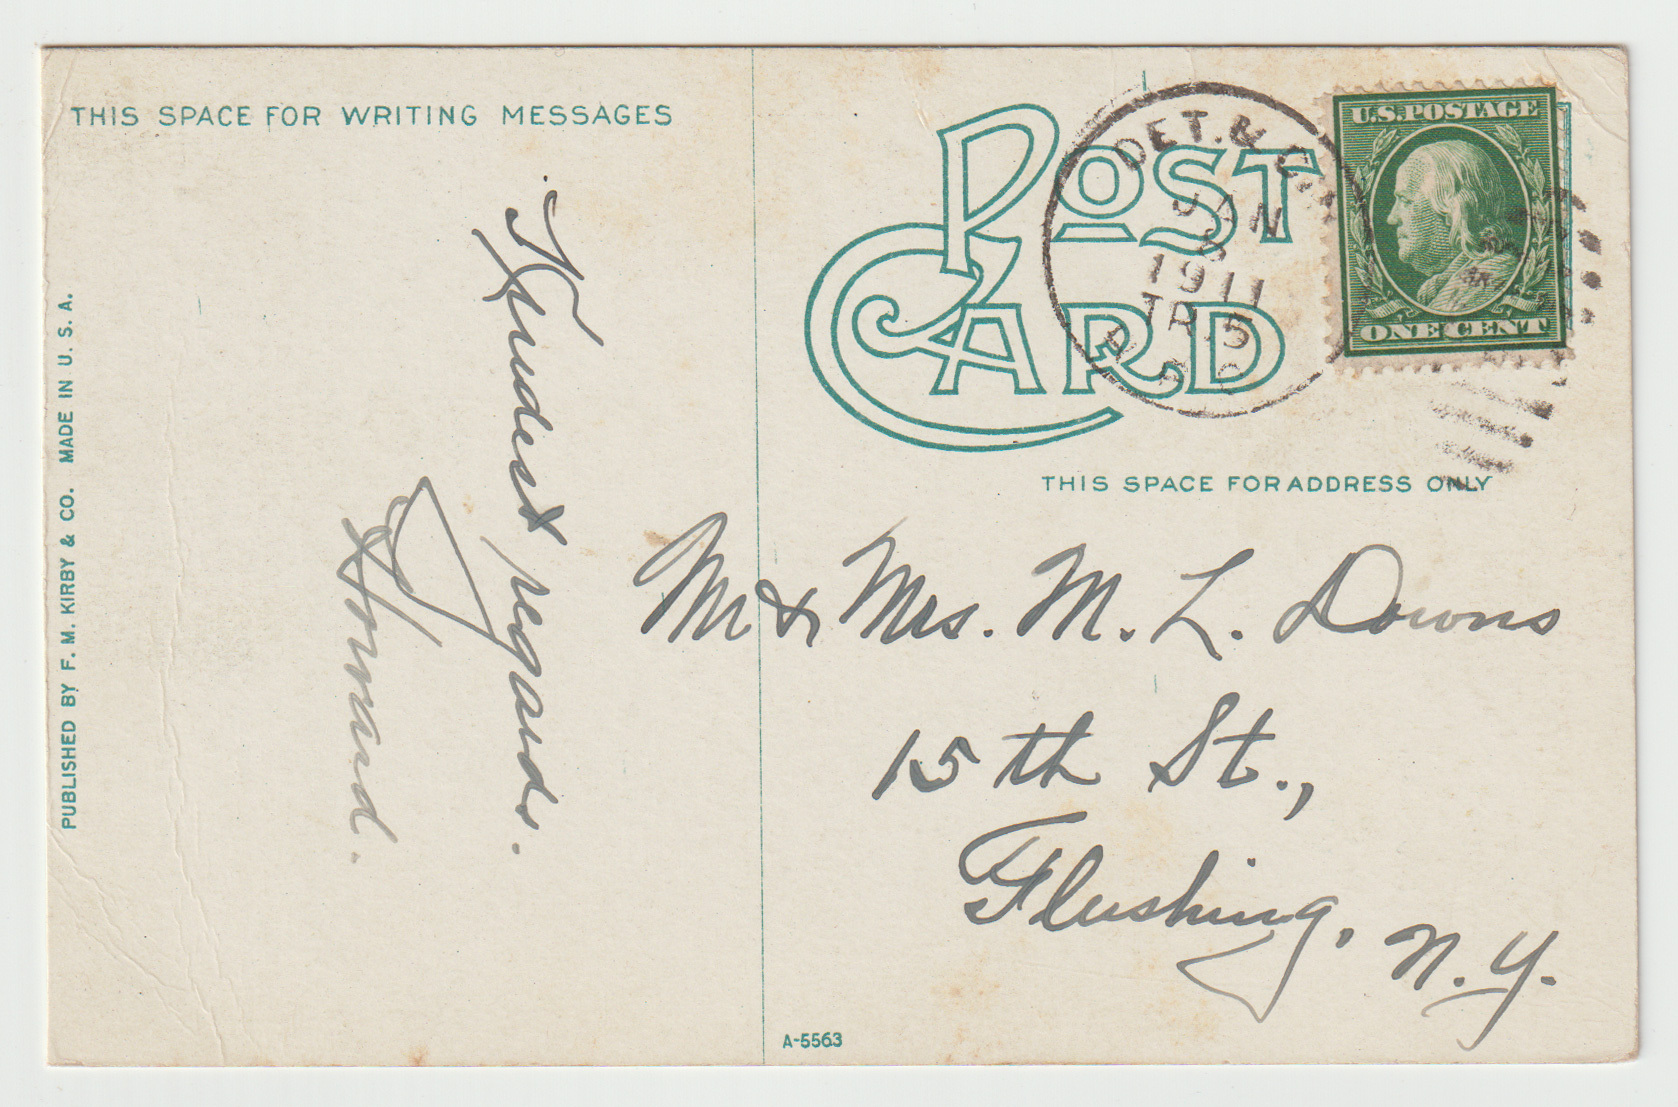 THIS SPACE FOR WRITING MESSAGES
POST CARD
DET. & CHI
JAN
8
1911
TR 5
R.P.O.
U.S. POSTAGE
ONE CENT
THIS SPACE FOR ADDRESS ONLY
Kindest regards.
Howard.
Mr & Mrs. M. L. Downs
15th St.,
Flushing, N.Y.
PUBLISHED BY F. M. KIRBY & CO. MADE IN U. S. A.
A-5563